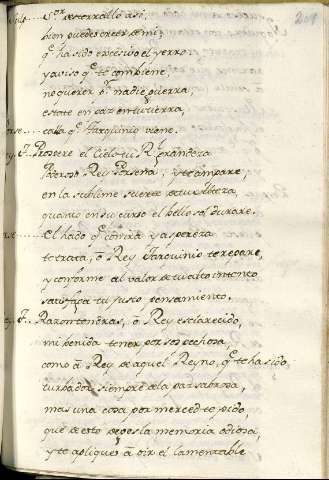 201
Sor desterrallo asi,
bien puedes creer de mi,
q̃ ha sido excesivo el yerro.
y aviso q̃ te combiene
no querer q̃ nadie guerra,
estate en paz en tu tierra,
calla q̃ Tarquinio viene.
Prospere el Cielo tu Rl grandeza
Poderoso Rey Porsena, y te ampare,
en la sublime suerte de tu Alteza,
quanto en su curso el bello sol durare.
El hado q̃ contra ti y aspereza
te trata, o Rey Tarquinio te repare,
y conforme al valor de tu alto intento
satisfaga tu justo pensamiento.
Razon tendras, ō Rey esclarecido,
mi benida tener por sospechosa,
como ā Rey de aquel Reyno, q̃ te ha sido
turbador siempre de la paz sabrosa,
mas una cosa por merced te pido,
que de esto dexes la memoria odiosa,
y te apliques ā oir el lamentable